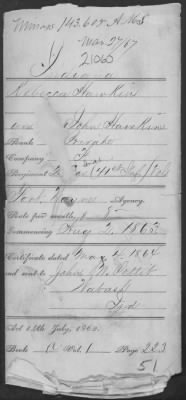 Minors 143.608
Mar 27/67
21060
Indiana
Rebecca Hawkins
John Hawkins
Rank Private
Company
Regiment
Fort Wayne Agency.
Rate per month, 8
Commencing Aug 2, 1863
Certificate dated 1864
and sent to John U. Pettit
Wabash
Ind
Act 14th July, 1862.
Book B Vol. 1 Page 223
51